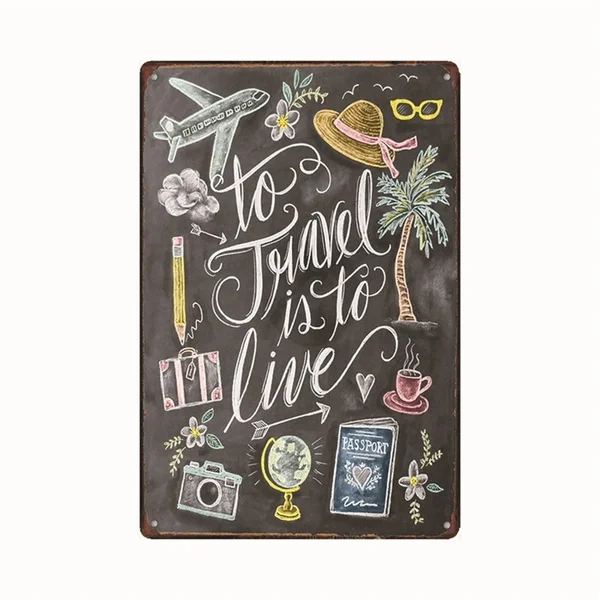 to
Travel
is to
live
PASSPORT